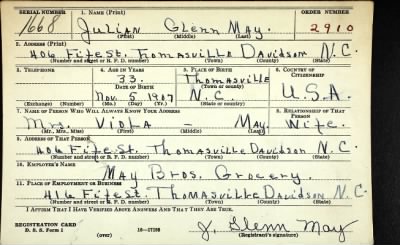 SERIAL NUMBER 1. NAME (Print) ORDER NUMBER
1668 Julian Glenn May. 2910
(First) (Middle) (Last)
2. ADDRESS (Print)
406 Fife St. Thomasville Davidson N.C.
(Number and street or R. F. D. number) (Town) (County) (State)
3. TELEPHONE 4. AGE IN YEARS 5. PLACE OF BIRTH 6. COUNTRY OF CITIZENSHIP
33. Thomasville
DATE OF BIRTH (Town or county)
Nov. 5 1907 N.C. U.S.A.
(Exchange) (Number) (Mo.) (Day) (Yr.) (State or country)
7. NAME OF PERSON WHO WILL ALWAYS KNOW YOUR ADDRESS 8. RELATIONSHIP OF THAT PERSON
Mrs. Viola – May. Wife.
(Mr., Mrs., Miss) (First) (Middle) (Last)
9. ADDRESS OF THAT PERSON
406 Fife St. Thomasville Davidson N.C.
(Number and street or R. F. D. number) (Town) (County) (State)
10. EMPLOYER'S NAME
May Bros. Grocery.
11. PLACE OF EMPLOYMENT OR BUSINESS
416 Fife St. Thomasville Davidson N.C.
(Number and street or R. F. D. number) (Town) (County) (State)
I AFFIRM THAT I HAVE VERIFIED ABOVE ANSWERS AND THAT THEY ARE TRUE.
REGISTRATION CARD
D. S. S. Form 1 (over) 16—17105 J. Glenn May
(Registrant's signature)